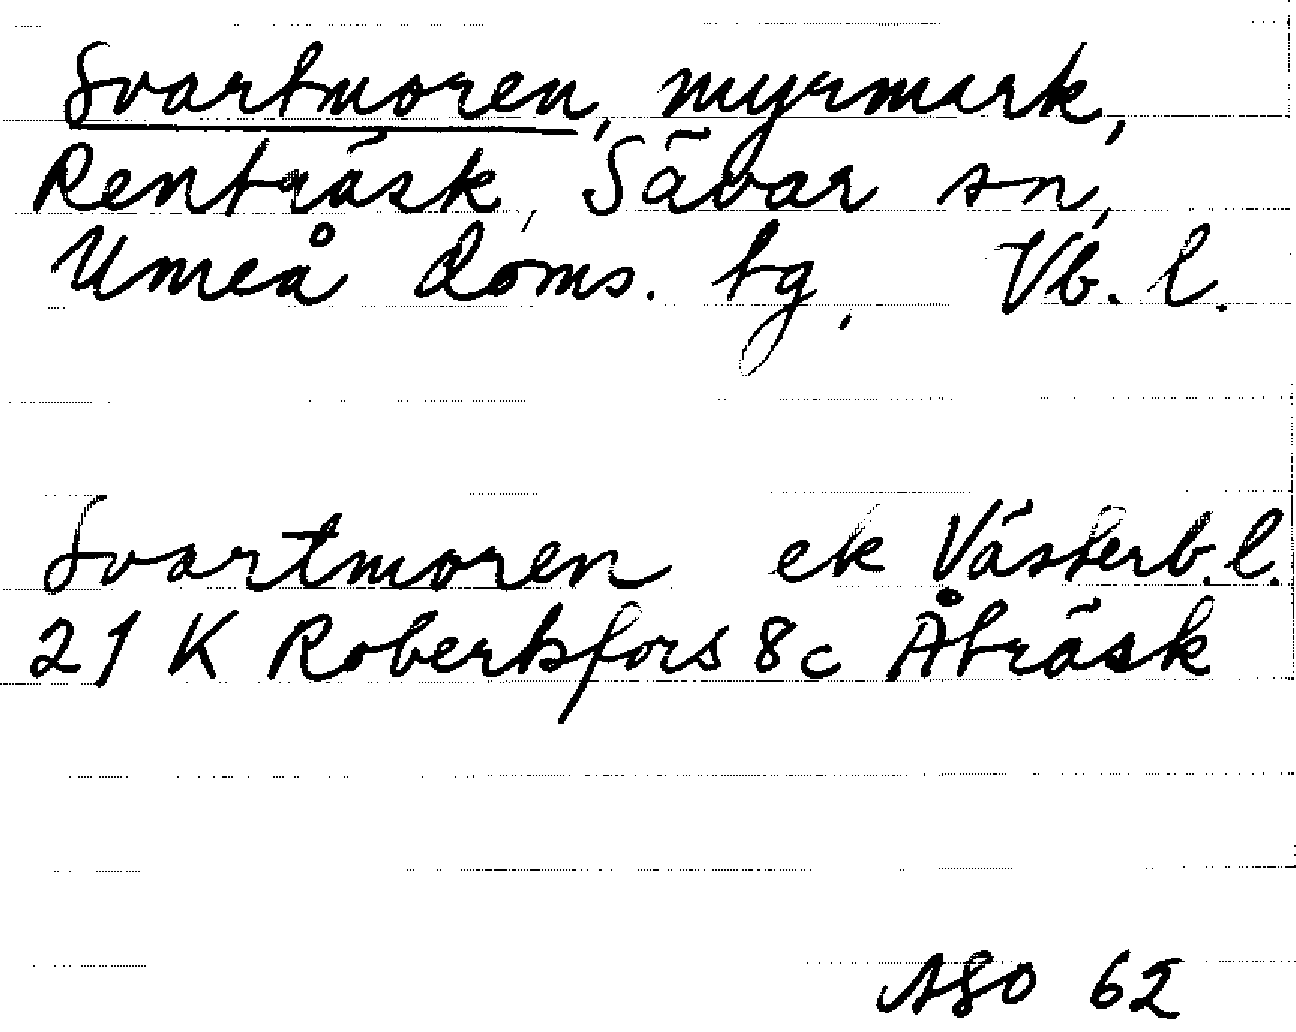 Svartmoren, myrmark,
Renträsk, Sävar sn,
Umeå doms. tg, Vb. l.
Svartmoren ek Västerb. l.
21 K Robertsfors 8c Åträsk
ASO 62